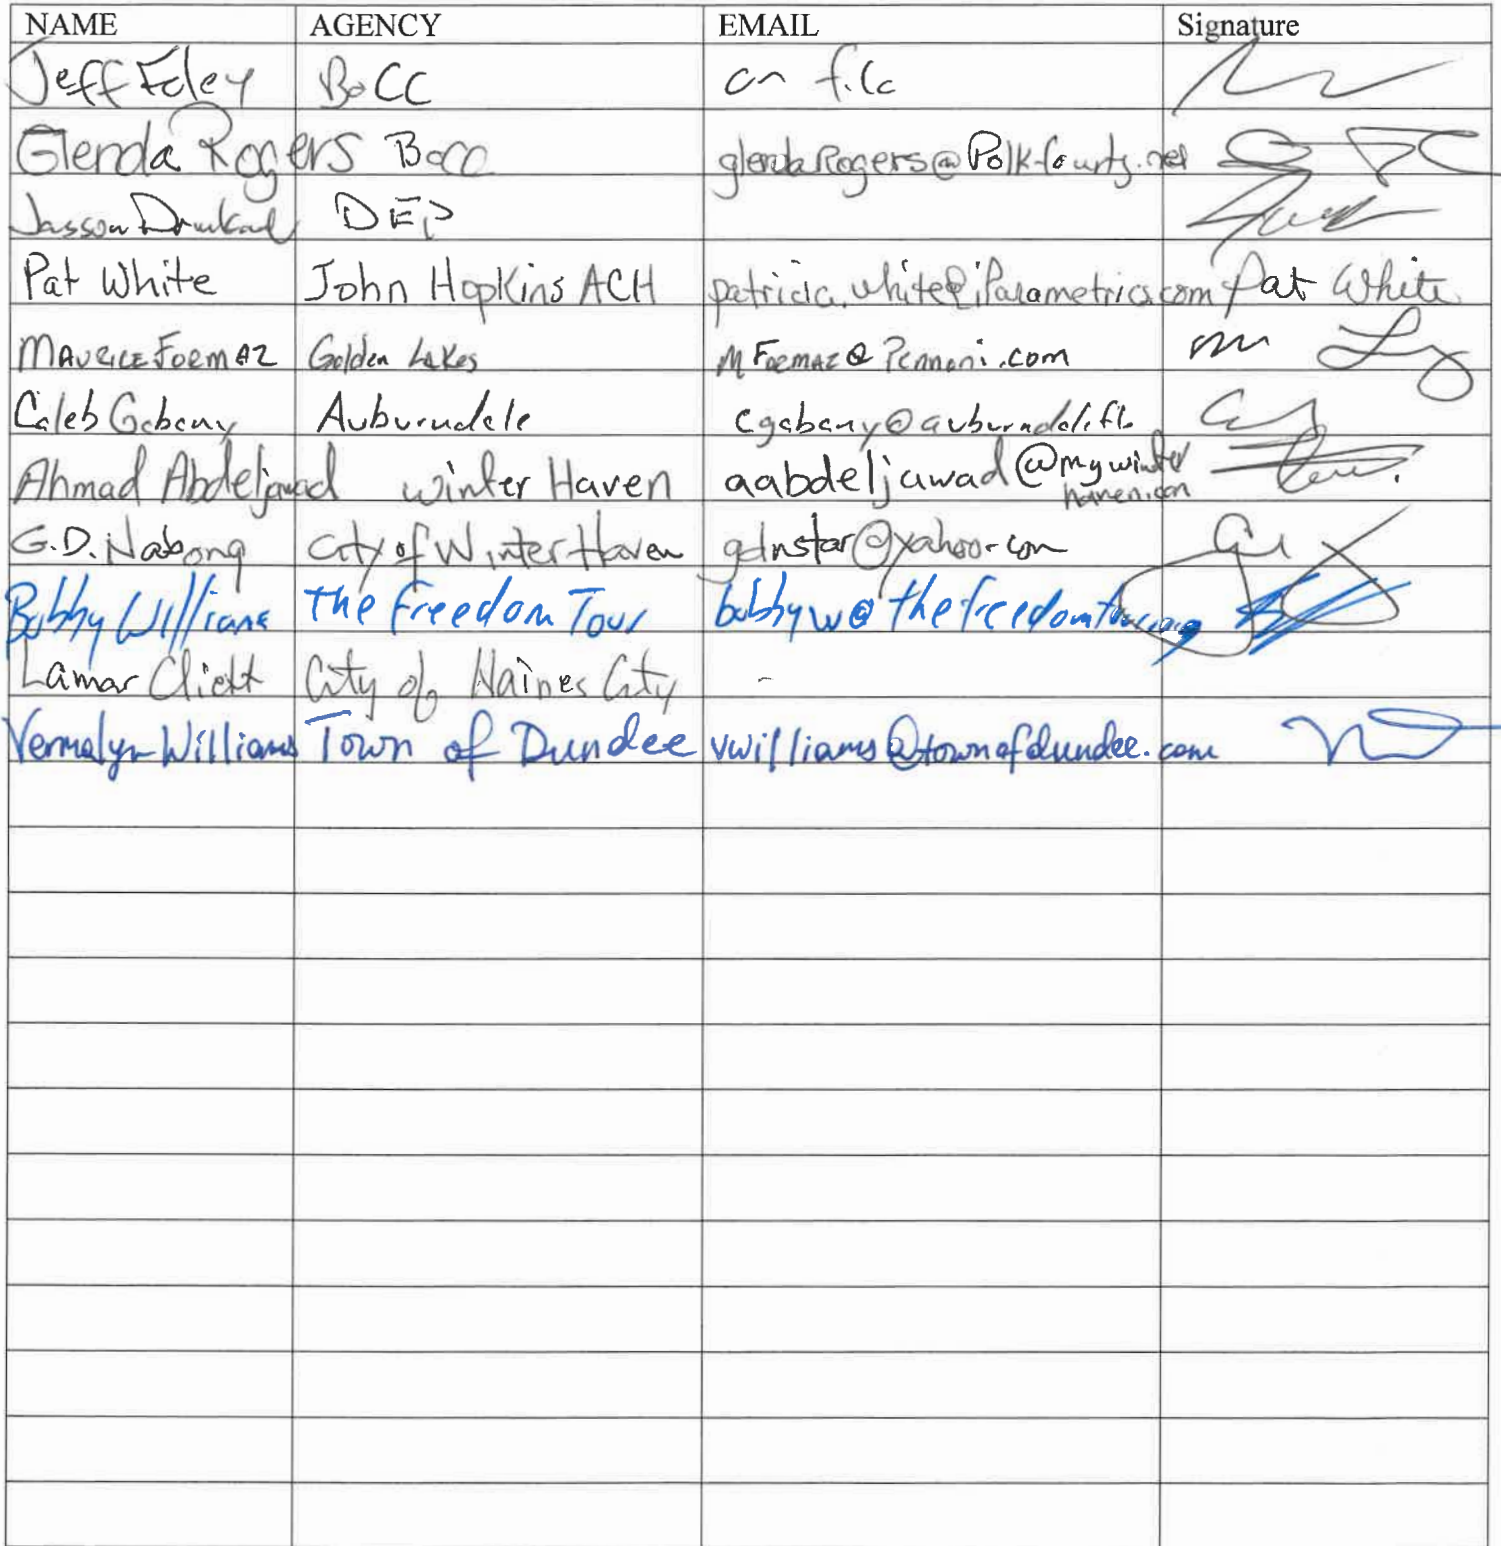 NAME AGENCY EMAIL Signature
Jeff Foley BoCC on file
Glenda Rogers BoCC glendaRogers@Polk-County.net
Jasson DEP
Pat White John Hopkins ACH patricia.white@iParametrics.com Pat White
MAURICE FORMAZ Golden Lakes MFORMAZ@Pennoni.com
Caleb Gabany Auburndale cgabany@auburndalefl.
Ahmad Abdeljawad winter Haven aabdeljawad@mywinter
haven.com
G.D. Nabong City of Winter Haven gdnstar@yahoo.com
Bobby Williams the Freedom Tour bobbyw@thefreedomtour.org
Lamar Clickt City of Haines City -
Vermelyn Williams Town of Dundee vwilliams@townofdundee.com